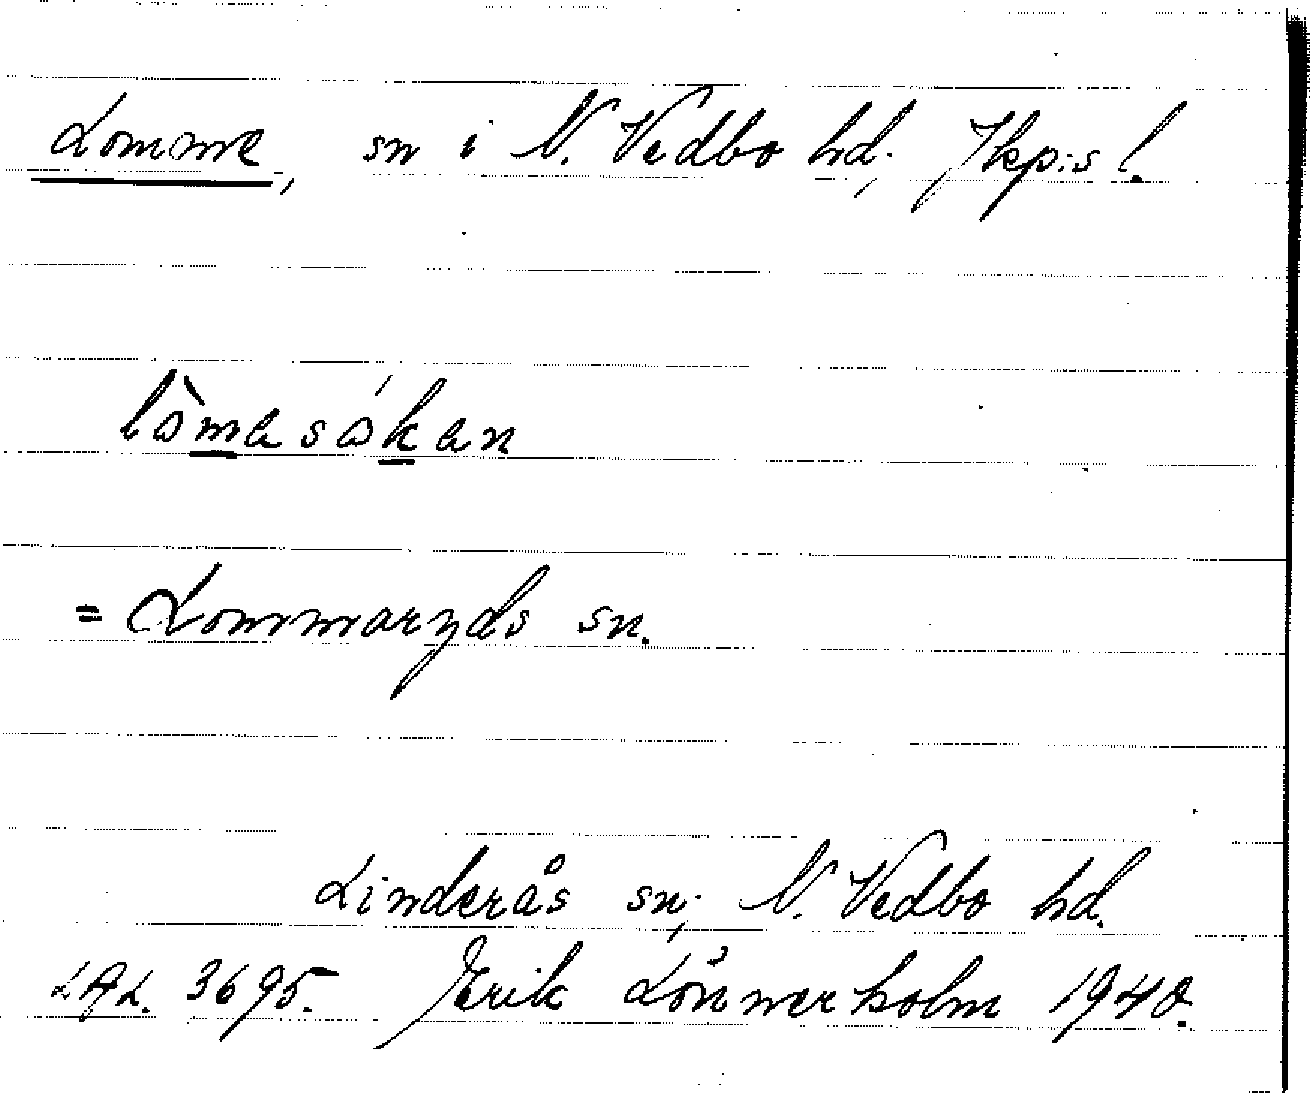 Lomme, sn i N. Vedbo hd, Jkp:s l.
lòmasókan
= Lommaryds sn.
Linderås sn, N. Vedbo hd.
LAL. 3695. Erik Lönnerholm 1940.